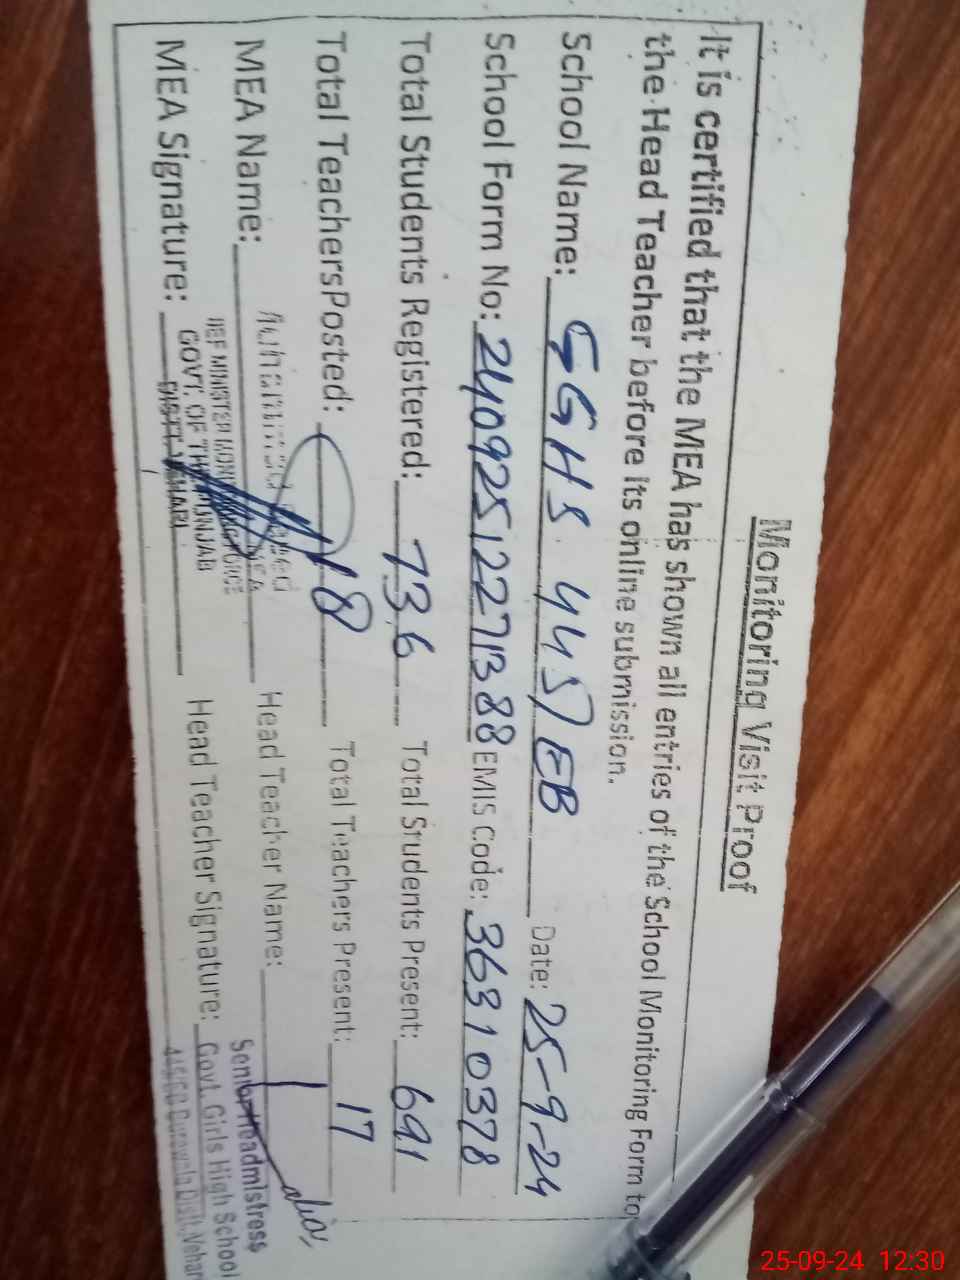 Monitoring Visit Proof
It is certified that the MEA has shown all entries of the School Monitoring Form to
the Head Teacher before its online submission.
School Name: GGHS 445/EB Date: 25-9-24
School Form No: 240925122271388 EMIS Code: 36310378
Total Students Registered: 736 Total Students Present: 691
Total TeachersPosted: 18 Total Teachers Present: 17
MEA Name: Head Teacher Name:
MEA Signature: Head Teacher Signature:
MEA
GOVT. OF THE PUNJAB
Senior Headmistress
Govt. Girls High School
25-09-24 12:30